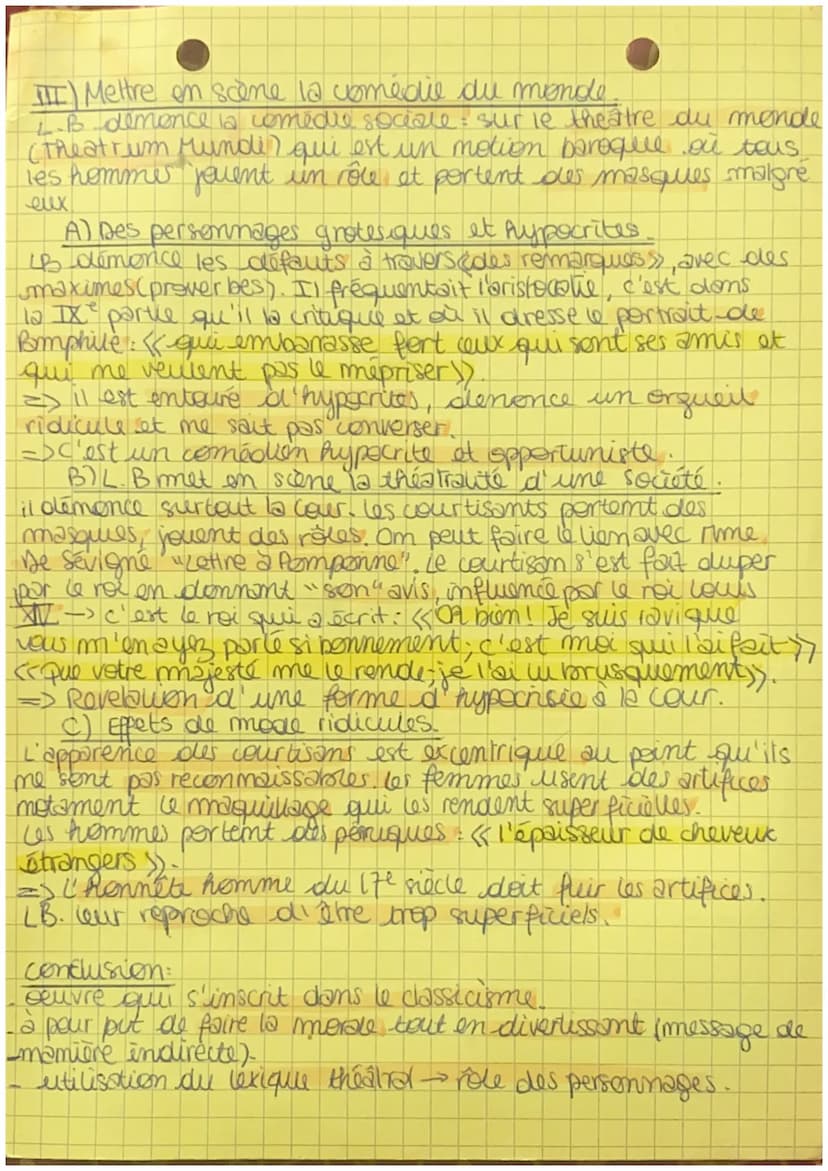 III) Mettre en scène la comédie du monde.
L.B dénonce la comédie sociale : sur le theâtre du monde
(Theatrum Mundi) qui est un notion baroque où tous
les hommes jouent un rôle et portent des masques malgré
eux
A) Des personnages grotesques et hypocrites.
LB dénonce les défauts à travers «des remarques», avec des
maximes (proverbes). Il fréquentait l'aristocratie, c'est dans
la IXe partie qu'il la critique et où il dresse le portrait de
Pamphile : «qui embarrasse fort ceux qui sont ses amis et
qui ne veulent pas le mépriser».
=> il est entouré d'hypocrites, dénonce un orgueil
ridicule et ne sait pas converser.
=> C'est un comédien hypocrite et opportuniste.
B) L.B met en scène la théâtralité d'une société.
il dénonce surtout la Cour. les courtisants portent des
masques, jouent des rôles. On peut faire le lien avec Mme
De Sévigné "Lettre à Pomponne". Le courtisan s'est fait duper
par le roi en donnant "son" avis, influencé par le roi Louis
XIV → c'est le roi qui a écrit : «Oh bien! Je suis ravi que
vous m'en ayez parlé si bonnement; c'est moi qui l'ai fait»
«Que votre majesté me le rende; je l'ai lu brusquement».
=> Revelation d'une forme d'hypocrisie à la cour.
C) Effets de mode ridicules.
L'apparence des courtisans est excentrique au point qu'ils
ne sont pas reconnaissables. les femmes usent des artifices
notament le maquillage qui les rendent superficielles.
Les hommes portent des perruques : «l'épaisseur de cheveux
étrangers».
=> L'Honnête homme du 17e siècle doit fuir les artifices.
LB. leur reproche d'être trop superficiels.
conclusion:
- oeuvre qui s'inscrit dans le classicisme.
- à pour but de faire la morale tout en divertissant (message de
manière indirecte).
- utilisation du lexique théâtral → rôle des personnages.